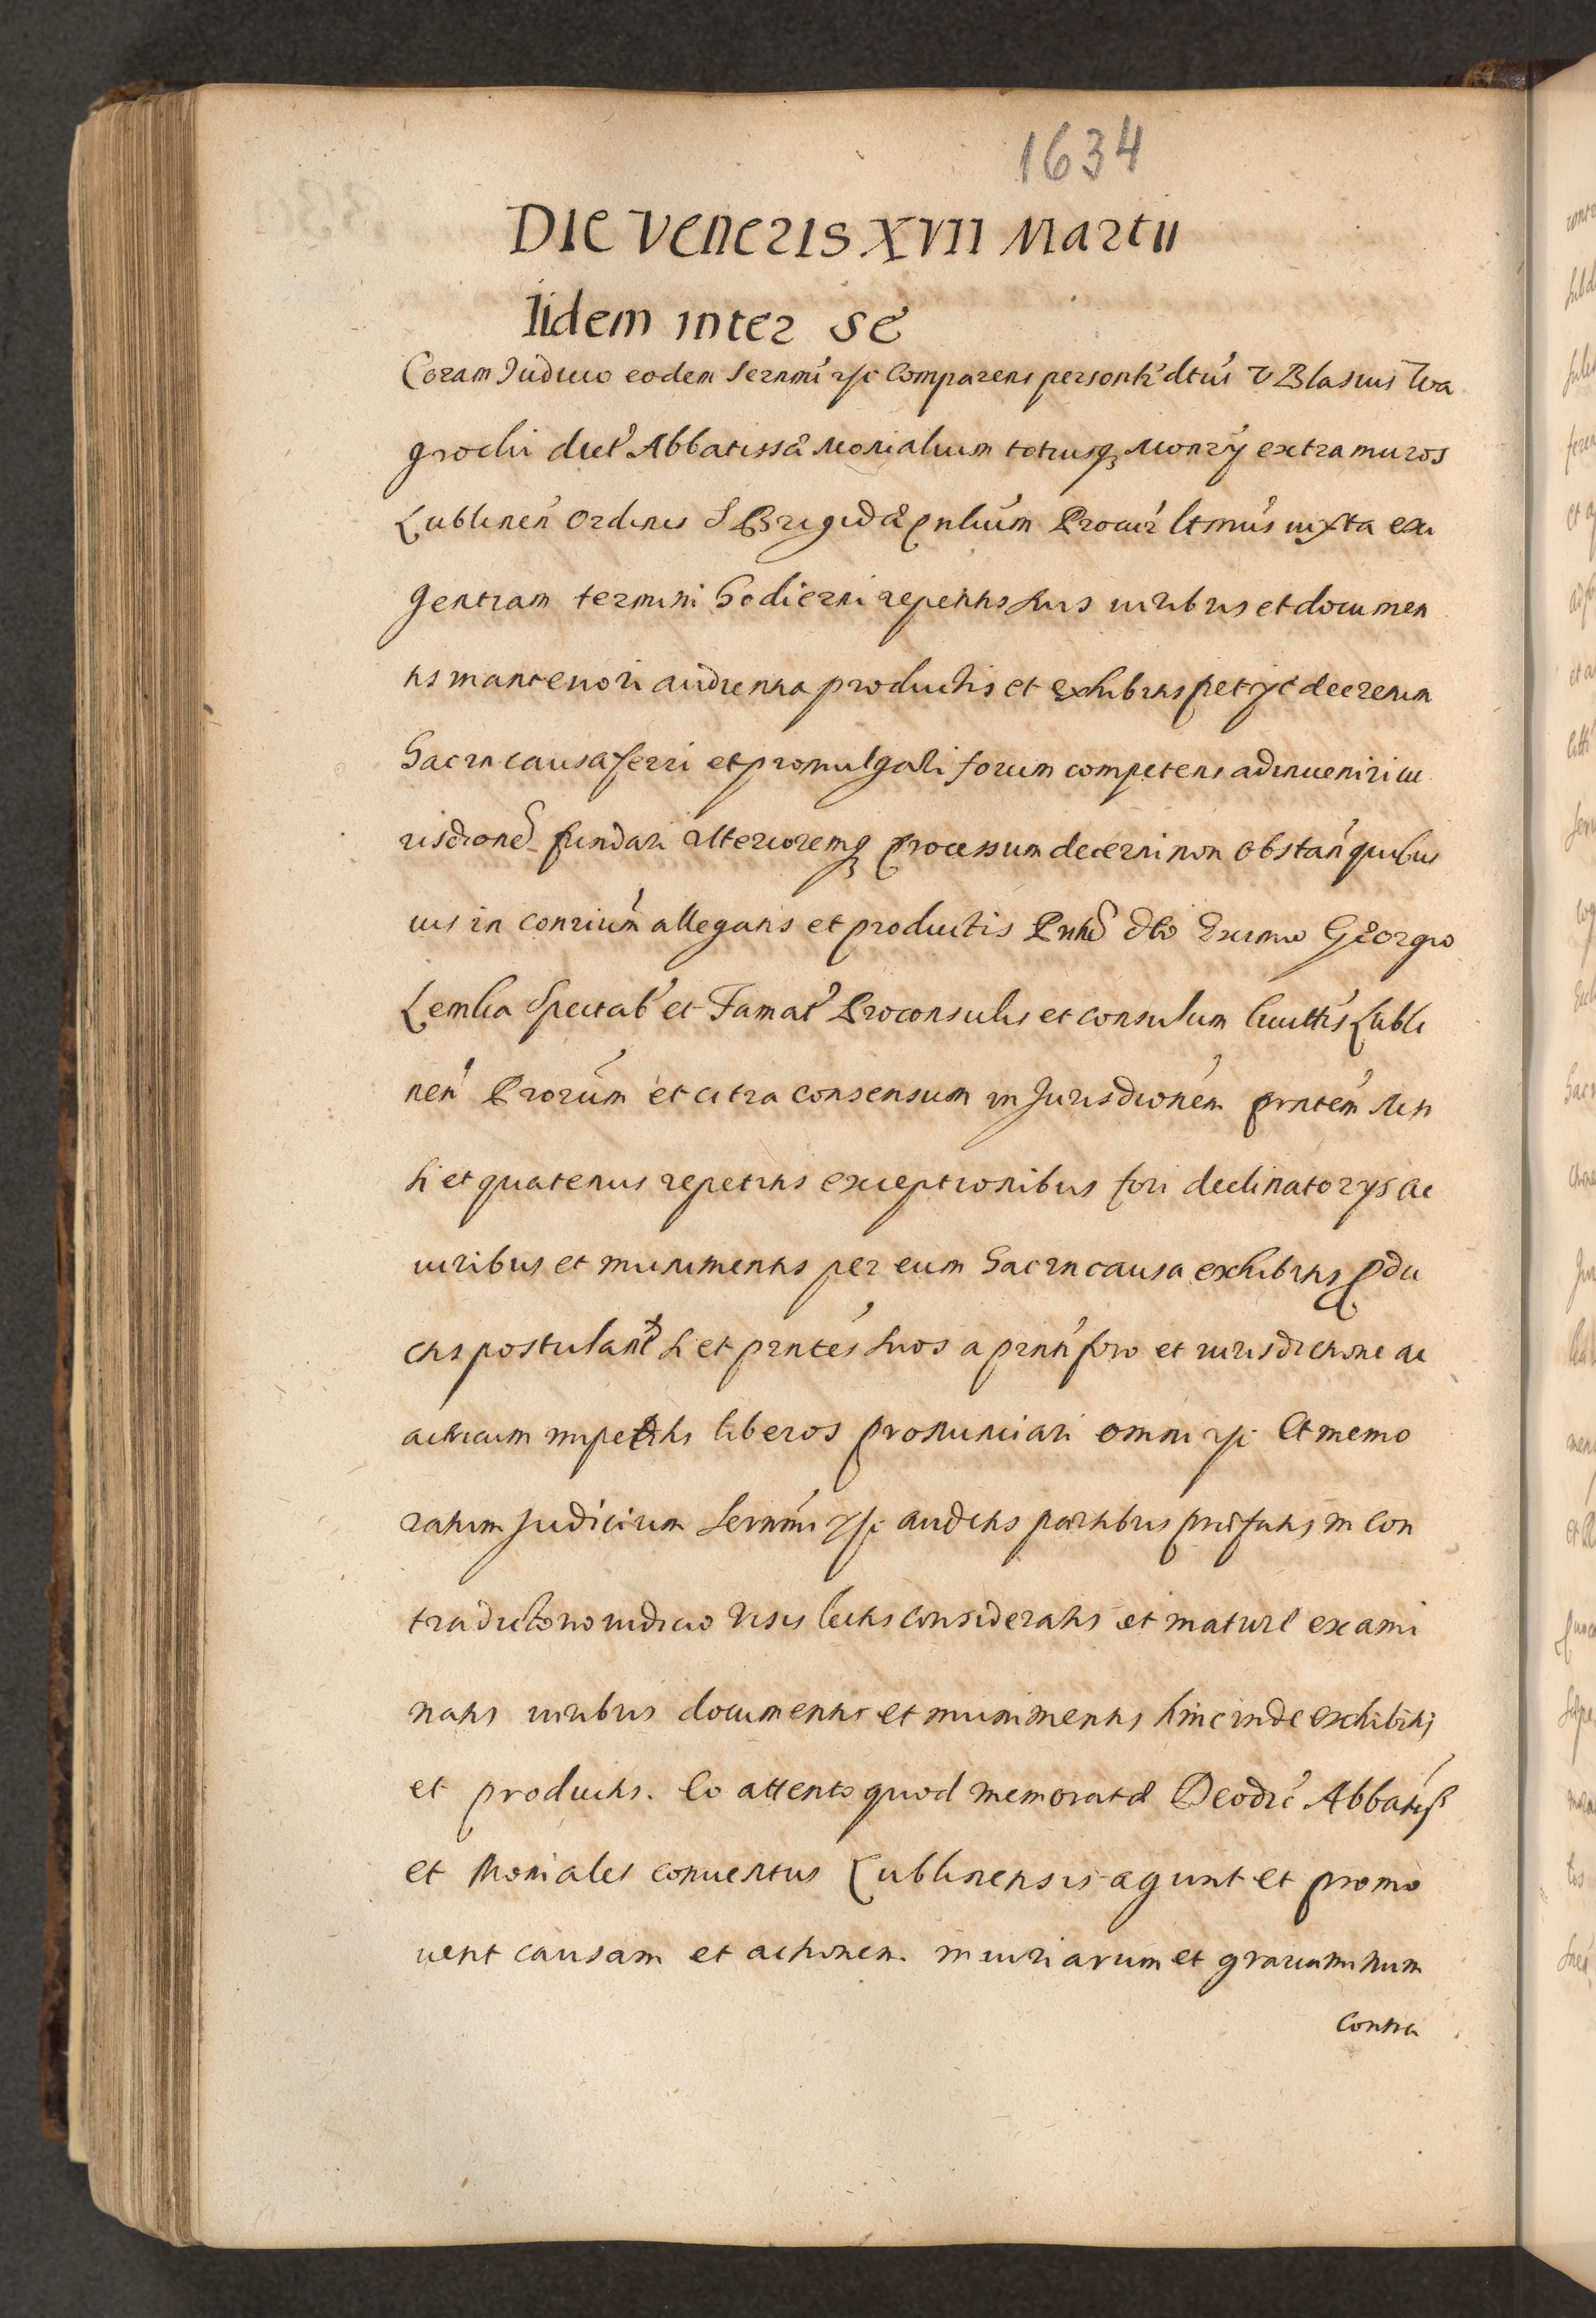 1634
DIE VENERIS XVII MARTII
Iidem inter se
Coram Iudicio eodem Sernmi rsc Comparens personlr dtus V Blasius Wa
grocki dictˀ Abbatissæ Monialium totiusq Monrÿ extra muros
Lublinen Ordinis S Brigidæ pnlium Procur ltmus iuxta exi
gentiam termini hodierni repetitis suis iuribus et documen
tis in anteriori audientia productis et exhibitis petÿt decretum
hac in causa ferri et promulgari forum competens adinveniri iu
risdione fundari ulterioremq processum decerni non obstan quibus
vis in conrium allegatis et productis Eximio Georgio
Lemka Spectab et Famat Proconsulis et consulum Civittis Lubli
nen Prorum et citra consensum in Jurisdionem prntem
li et quatenus repetitis exceptionibus fori declinatorÿs ac
iuribus et munimentis per eum hac in causa exhibitis pdu
ctis postulante et prntes suos a prnti foro et iurisdictione ac
actricum impetitis liberos pronunciari omni Et memo
ratum Judicium Sernmi rsc auditis partibus præfatis in con
tradictorio iudicio visis lectis consideratis et mature exami
natis iuribus documentis et munimentis hinc inde exhibitis
et productis. Eo attento quod memoratæ Deodic Abbatiss
et Moniales conventus Lublinensis agunt et promo
vent causam et actionem iniuriarum et gravaminum
contra